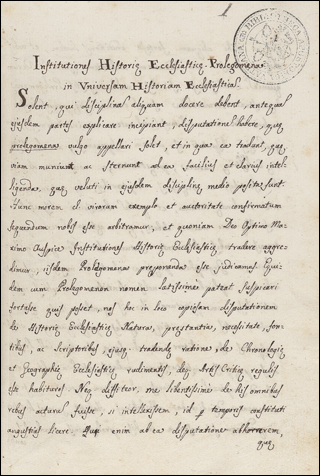 1
Institutiones Historię Ecclesiasticę. Prolegomena
in Universam Historiam Ecclesiasticã.
Solent, qui disciplinã aliquam docere debent, antequã
ejusdem partes explicare incipiant, disputationẽ habere, quę
prolegomena vulgo appellari solet, et in qua ea tradant, quę
viam muniunt ac sternunt ad ea facilius et clarius intel-
ligenda, quę veluti in ejusdem disciplinę medio posita sunt.
Hunc morem cl. virorum exemplo et autoritate confirmatum
sequendum nobis esse arbitramur, et quoniam Deo Optimo Ma-
ximo Auspice Institutiones Historię Ecclesiasticę tradere aggre-
dimur, iisdem Prolegomena pręponenda esse judicamus. Equi-
dem cum Prolegomenon nomen latissime pateat suspicari
fortasse quis posset, nos hoc in loco copiosam disputationem
de Historię Ecclesiasticę Natura, prestantia, necessitate, fon-
tibus, ac Scriptoribus ejusq. tradendę ratione, de Chronologię
et Geographię Ecclesiasticę rudimentis, deq. Artis Criticę regulis
esse habituros. Neq. diffiteor, me libentissime de his omnibus
rebus acturũ fuisse, si intellexissem, id p temporis constituti
angustias licere. Quę enim ab ea disputatione abhorrerem,
quę